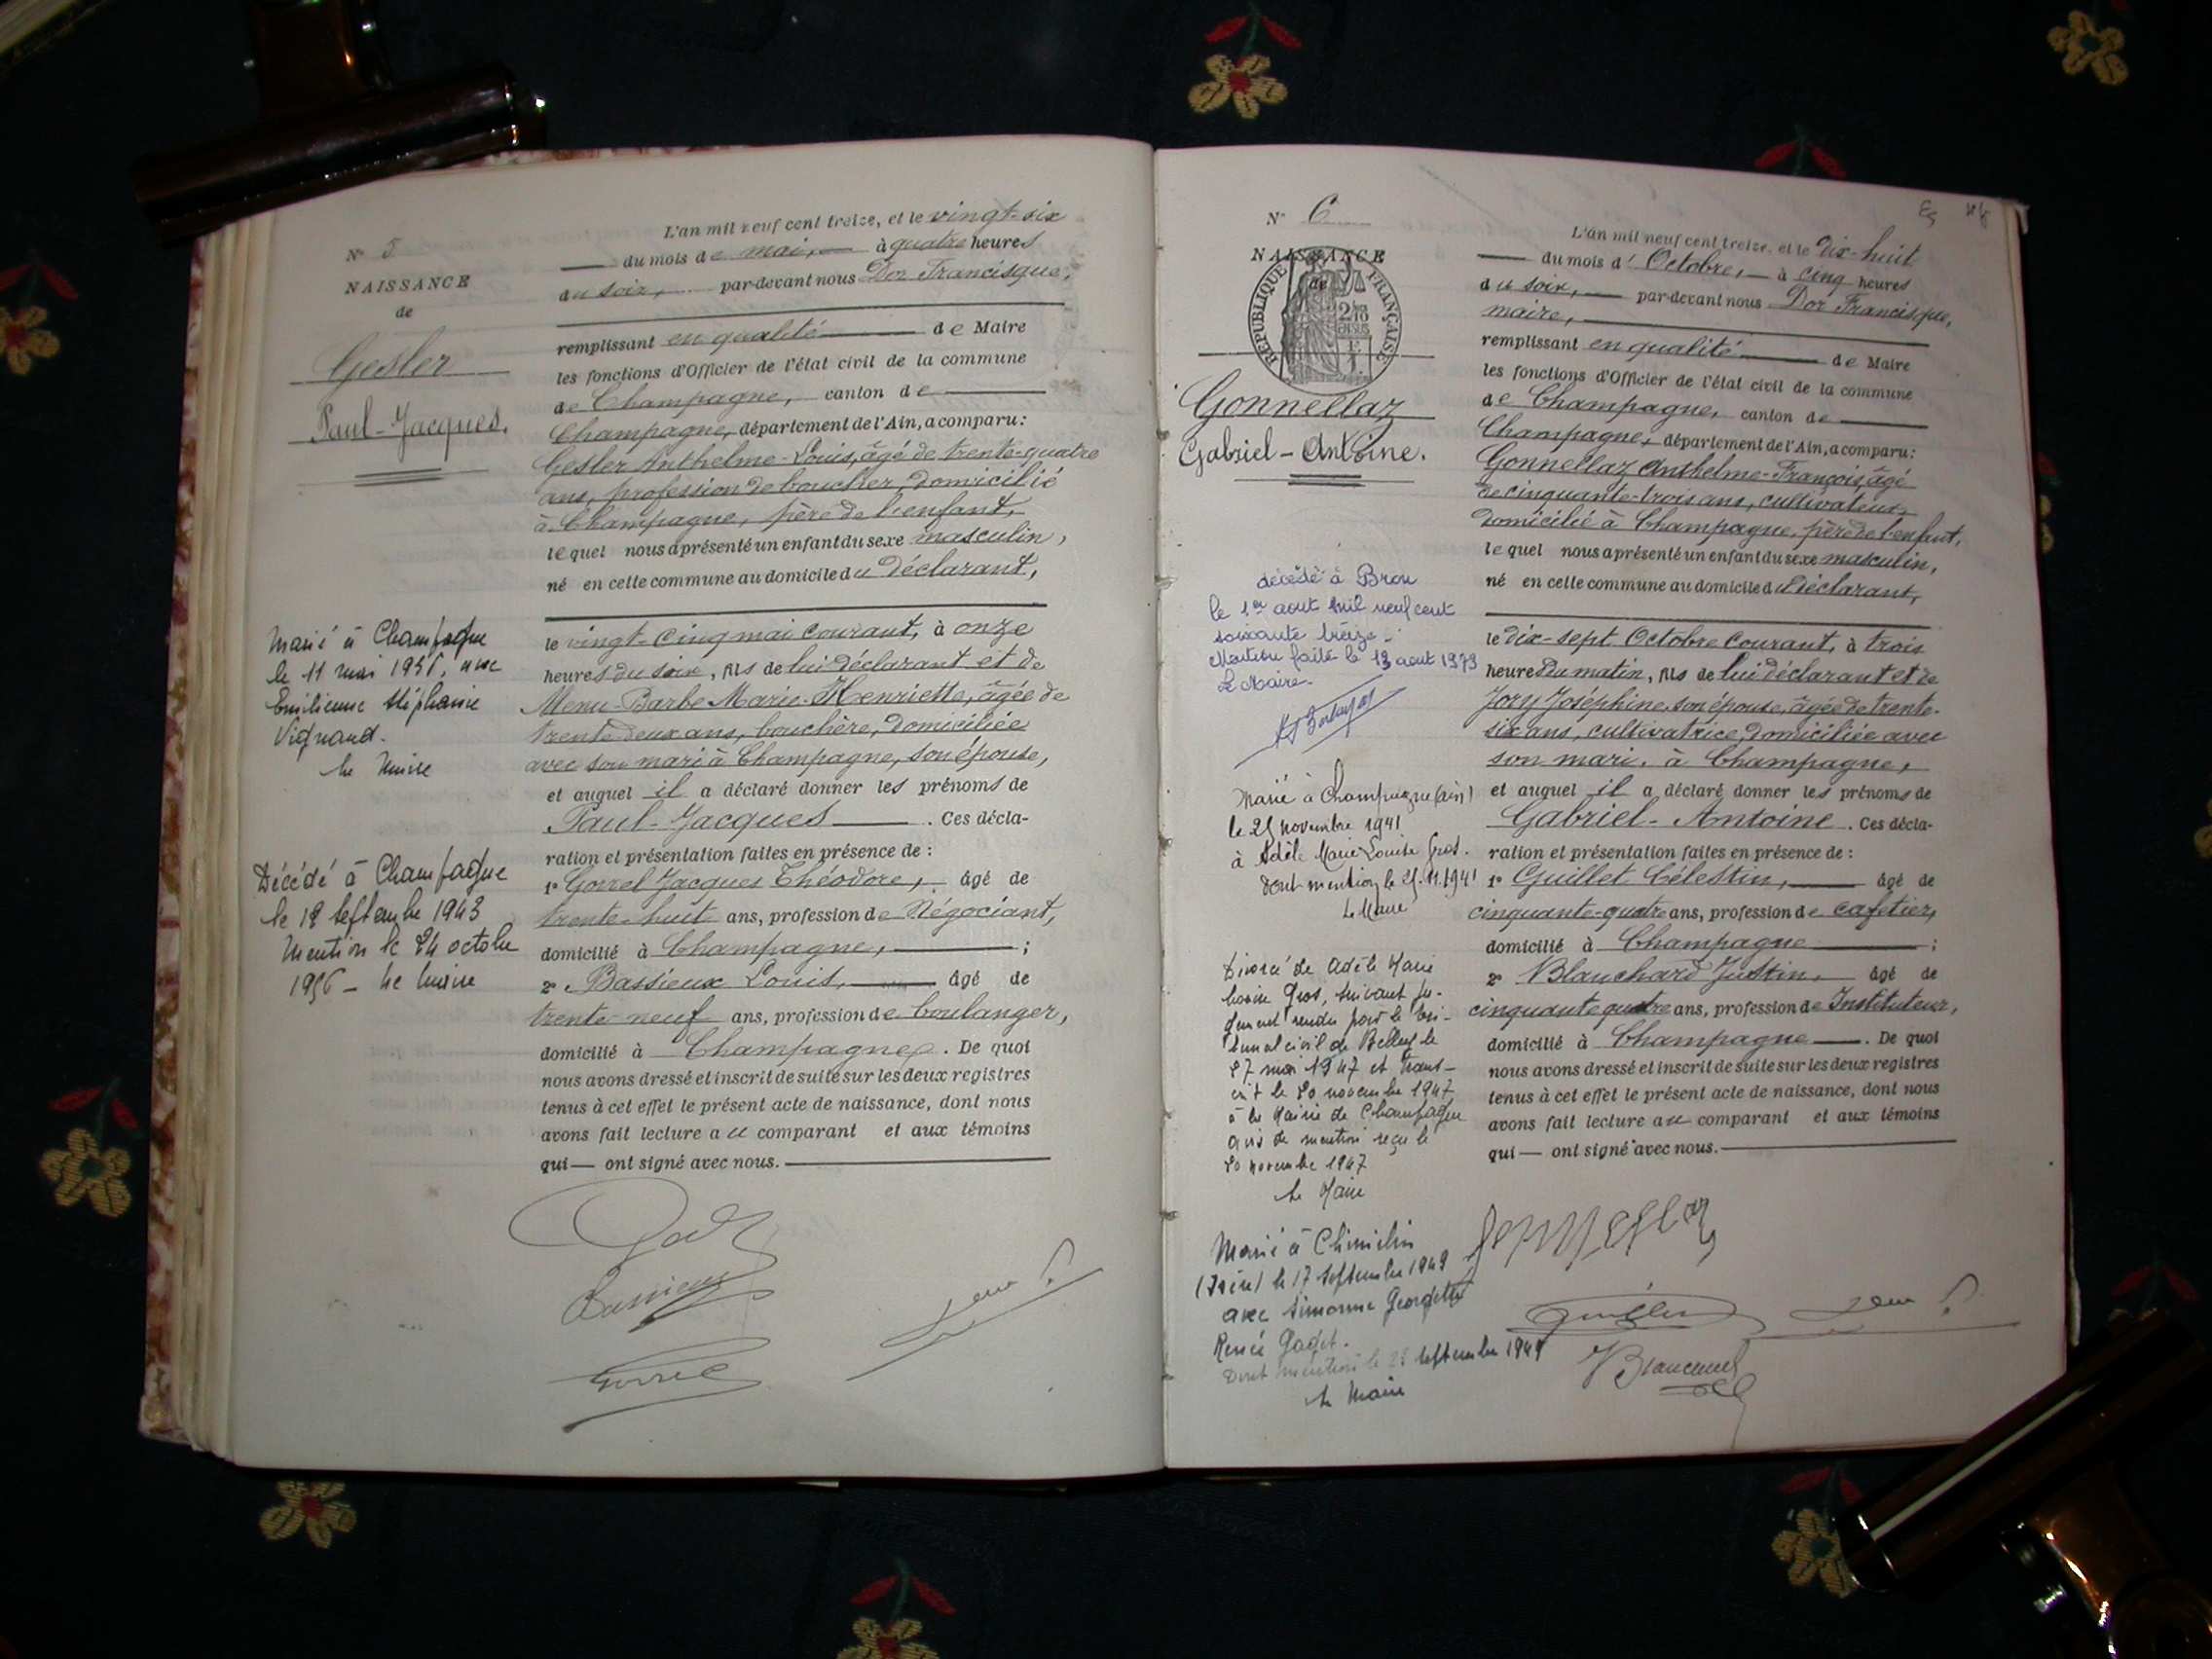 N° 5
NAISSANCE
de
Gesler
Paul-Jacques.
Marié à Champagne
le 11 mai 1936, avec
Emilienne Stéphanie
Vignand.
Le Maire
Décédé à Champagne
le 18 septembre 1943
Mention le 24 octobre
1956 - Le Maire
L'an mil neuf cent treize, et le vingt-six
du mois de mai, à quatre heures
du soir, par-devant nous Dor Francisque,
remplissant en qualité de Maire
les fonctions d'Officier de l'état civil de la commune
de Champagne, canton de
Champagne, département de l'Ain, a comparu:
Gesler Anthelme-Louis, âgé de trente-quatre
ans, profession de boucher, domicilié
à Champagne, père de l'enfant,
lequel nous a présenté un enfant du sexe masculin,
né en cette commune au domicile du déclarant,
le vingt-cinq mai courant, à onze
heures du soir, fils de lui déclarant et de
Menu-Barbe Marie-Henriette, âgée de
trente-deux ans, bouchère, domiciliée
avec son mari à Champagne, son épouse,
et auquel il a déclaré donner les prénoms de
Paul-Jacques. Ces décla-
ration et présentation faites en présence de :
1° Gorrel Jacques Théodore, âgé de
trente-huit ans, profession de Négociant,
domicilié à Champagne, ;
2° Bassieux Louis, âgé de
trente-neuf ans, profession de boulanger,
domicilié à Champagne. De quoi
nous avons dressé et inscrit de suite sur les deux registres
tenus à cet effet le présent acte de naissance, dont nous
avons fait lecture au comparant et aux témoins
qui — ont signé avec nous.
Bassieux
Gorrel
N° 6
NAISSANCE
de
RÉPUBLIQUE FRANÇAISE
Gonnellaz
Gabriel-Antoine.
décédé à Bron
le 1er aout mil neuf cent
soixante treize.
Mention faite le 13 aout 1973
Le Maire.
Marié à Champagne (Ain)
le 25 novembre 1941
à Adèle Marie Louise Gros.
Dont mention le 25.11.1941
Le Maire
Divorcé de Adèle Marie
Louise Gros, suivant ju-
gement rendu par le tri-
bunal civil de Belley le
27 mai 1947 et trans-
crit le 20 novembre 1947
à la Mairie de Champagne
avis de mention reçu le
20 novembre 1947
Le Maire
Marié à Chimilin
(Isère) le 17 septembre 1949
avec Simonne Georgette
Renée Gadet.
Dont mention le septembre 1949
Le Maire
L'an mil neuf cent treize, et le dix-huit
du mois d'Octobre, à cinq heures
du soir, par-devant nous Dor Francisque,
maire,
remplissant en qualité de Maire
les fonctions d'Officier de l'état civil de la commune
de Champagne, canton de
Champagne, département de l'Ain, a comparu:
Gonnellaz Anthelme-François, âgé
de cinquante-trois ans, cultivateur,
domicilié à Champagne, père de l'enfant,
lequel nous a présenté un enfant du sexe masculin,
né en cette commune au domicile du déclarant,
le dix-sept Octobre courant, à trois
heures du matin, fils de lui déclarant et de
Jory Joséphine, son épouse, âgée de trente-
six ans, cultivatrice, domiciliée avec
son mari, à Champagne,
et auquel il a déclaré donner les prénoms de
Gabriel-Antoine. Ces décla-
ration et présentation faites en présence de :
1° Guillet Célestin, âgé de
cinquante-quatre ans, profession de cafetier,
domicilié à Champagne ;
2° Blanchard Justin, âgé de
cinquante quatre ans, profession de Instituteur,
domicilié à Champagne. De quoi
nous avons dressé et inscrit de suite sur les deux registres
tenus à cet effet le présent acte de naissance, dont nous
avons fait lecture au comparant et aux témoins
qui — ont signé avec nous.
Gonnellaz
Guillet
Blanchard